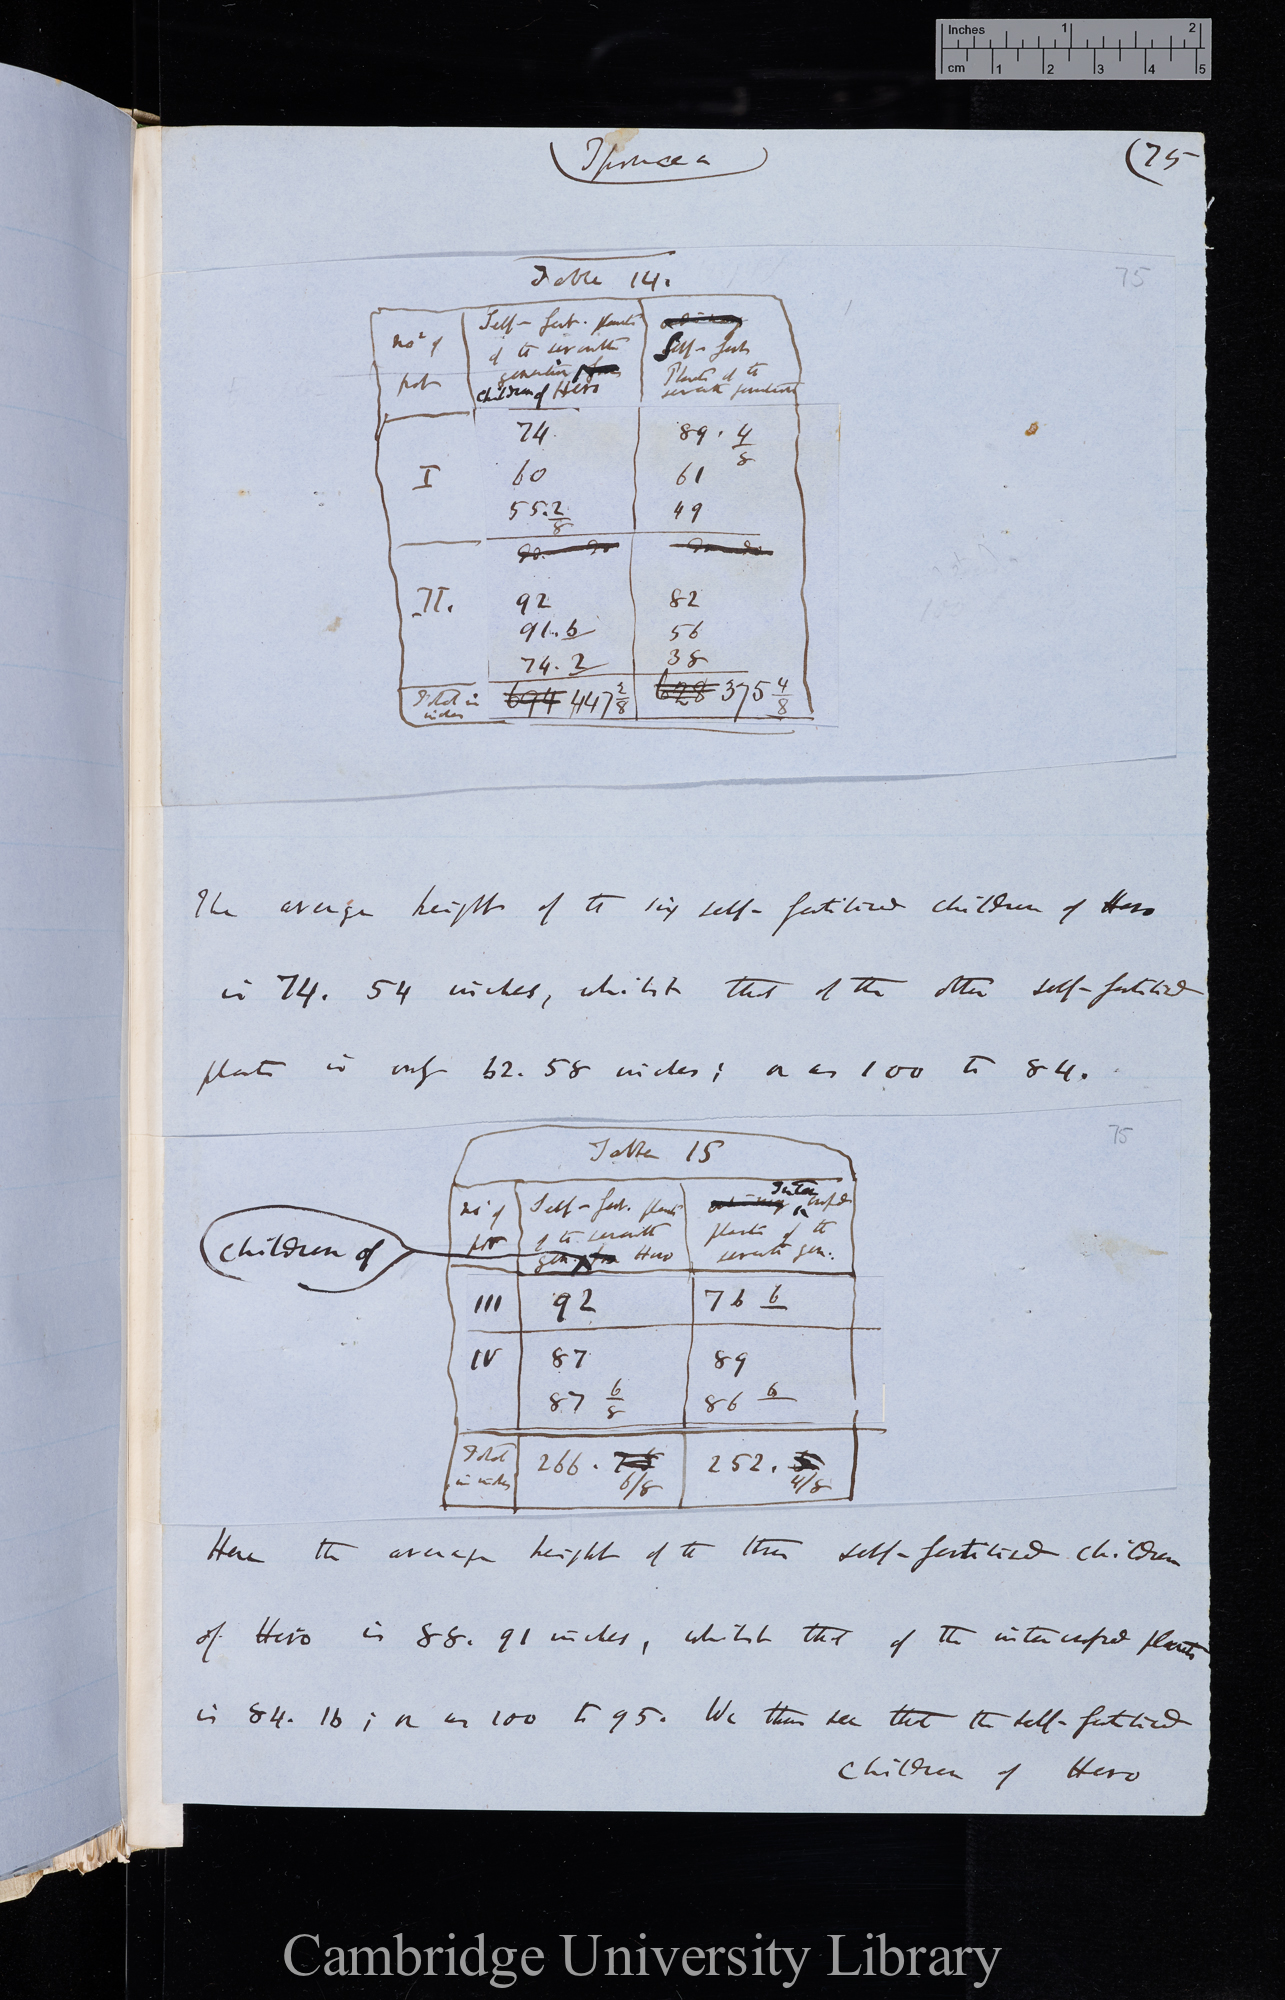 Inches 1 2
cm 1 2 3 4 5
Ipomœa
(75
75
Table 14.
No of pot
Self-fert. plants of the seventh generation children of Hero
Self-fert. Plants of the seventh generation
I
74 89.4/8
60 61
55.2/8 49
II.
92 82
91.6 56
74.2 38
Total in inches 694 447 2/8 628 375 4/8
The average height of the six self-fertilised children of Hero
is 74.54 inches, whilst that of the other self-fertilised
plants is only 62.58 inches; or as 100 to 84.
75
Table 15
No of pot
Self-fert. plants of the seventh gen. Hero
Inter crossed plants of the seventh gen.
children of
III 92 76 6
IV 87 89
87 6/8 86 6
Total in inches 266. 6/8 252. 4/8
Here the average height of the three self-fertilised children
of Hero is 88.91 inches, whilst that of the intercrossed plants
is 84.16; or as 100 to 95. We thus see that the self-fertilised
children of Hero
Cambridge University Library